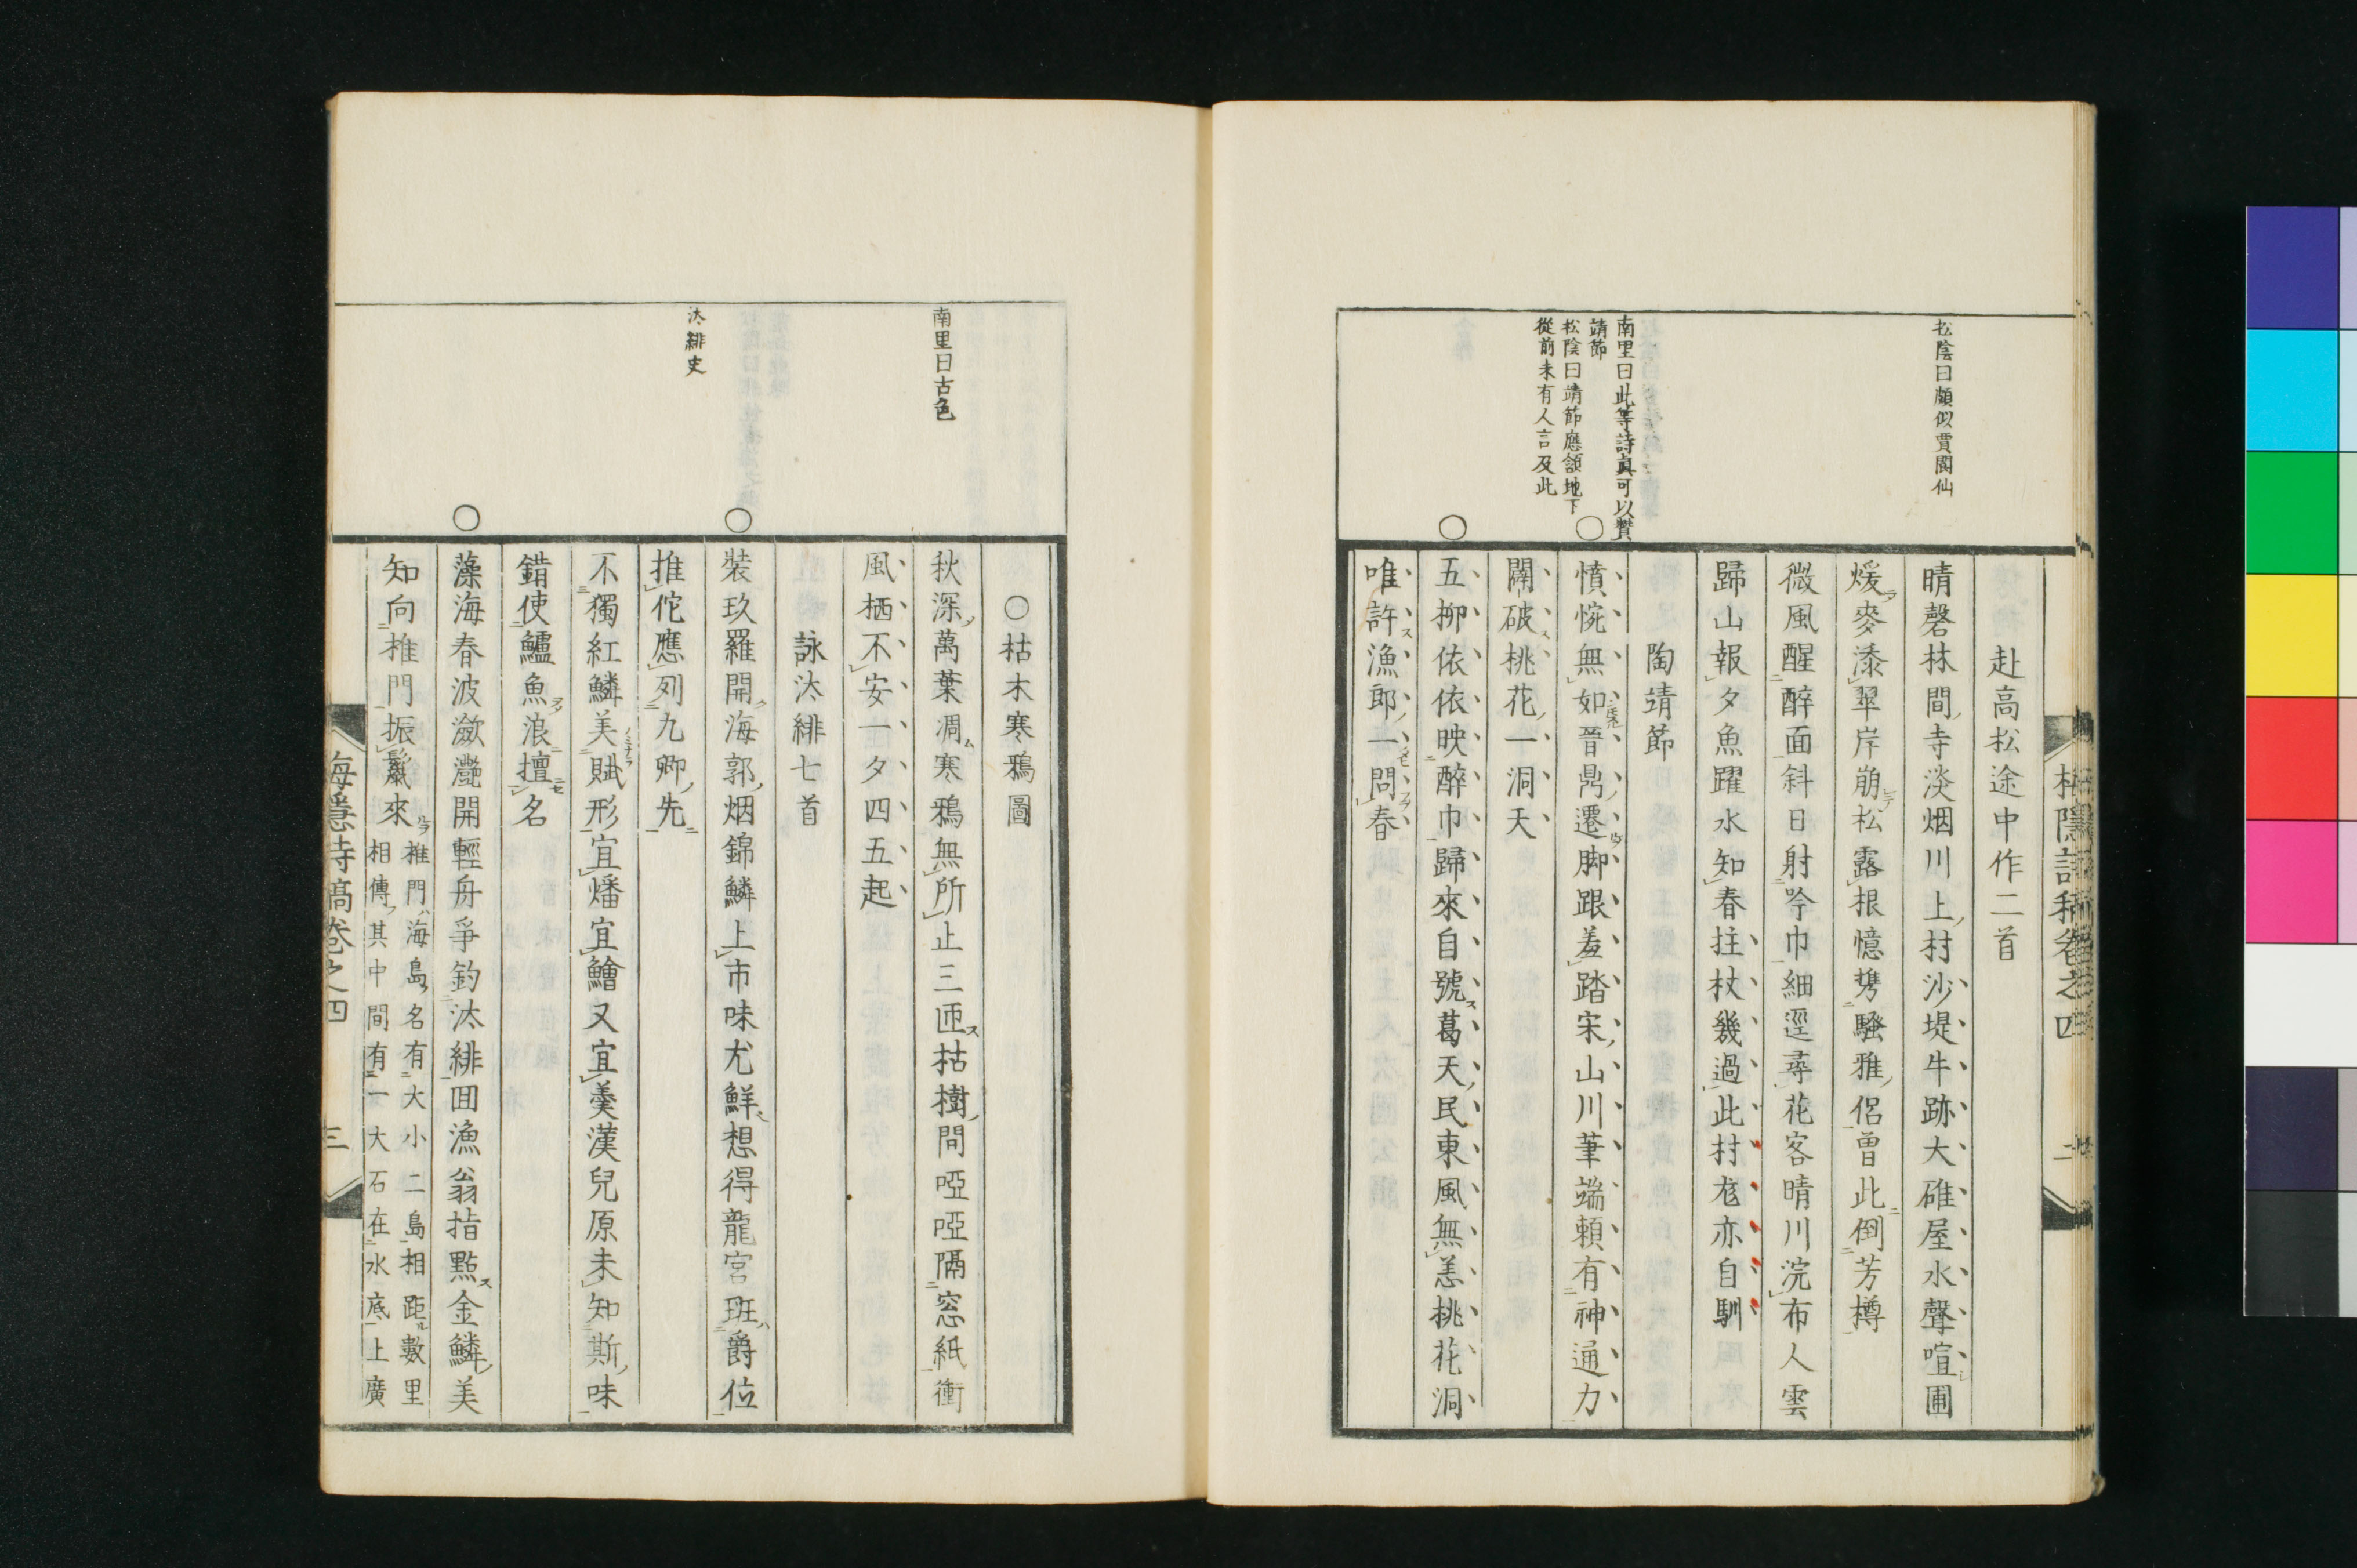 梅隱詩稿卷之四
二
赴高松途中作二首
晴磬林間寺淡烟川上村沙堤牛跡大碓屋水聲喧圃
煖麥漆翠岸崩松露根憶携騷雅侶曾此倒芳樽
微風醒醉面斜日射吟巾細逕尋花客晴川浣布人雲
歸山報夕魚躍水知春拄杖幾過此村尨亦自馴
陶靖節
憤惋無如晉鼎遷脚跟羞踏宋山川筆端賴有神通力
闢破桃花一洞天
五柳依依映醉巾歸來自號葛天民東風無恙桃花洞
唯許漁郎一問春
松陰曰頗似賈閬仙
南里曰此等詩真可以贊
靖節
松陰曰靖節應頷地下
從前未有人言及此
○枯木寒鴉圖
秋深萬葉凋寒鴉無所止三匝枯樹間啞啞隔窓紙衝
風栖不安一夕四五起
詠汰緋七首
裝玖羅開海郭烟錦鱗上市味尤鮮想得龍宮班爵位
推佗應列九卿先
不獨紅鱗美賦形宜燔宜鱠又宜羹漢兒原未知斯味
錯使鱸魚浪擅名
藻海春波瀲灔開輕舟爭釣汰緋回漁翁指點金鱗美
知向推門振鬣來
推門海島名有大小二島相距數里
相傳其中間有一大石在水底上廣
南里曰古色
汰緋史
梅隱詩稿卷之四
三